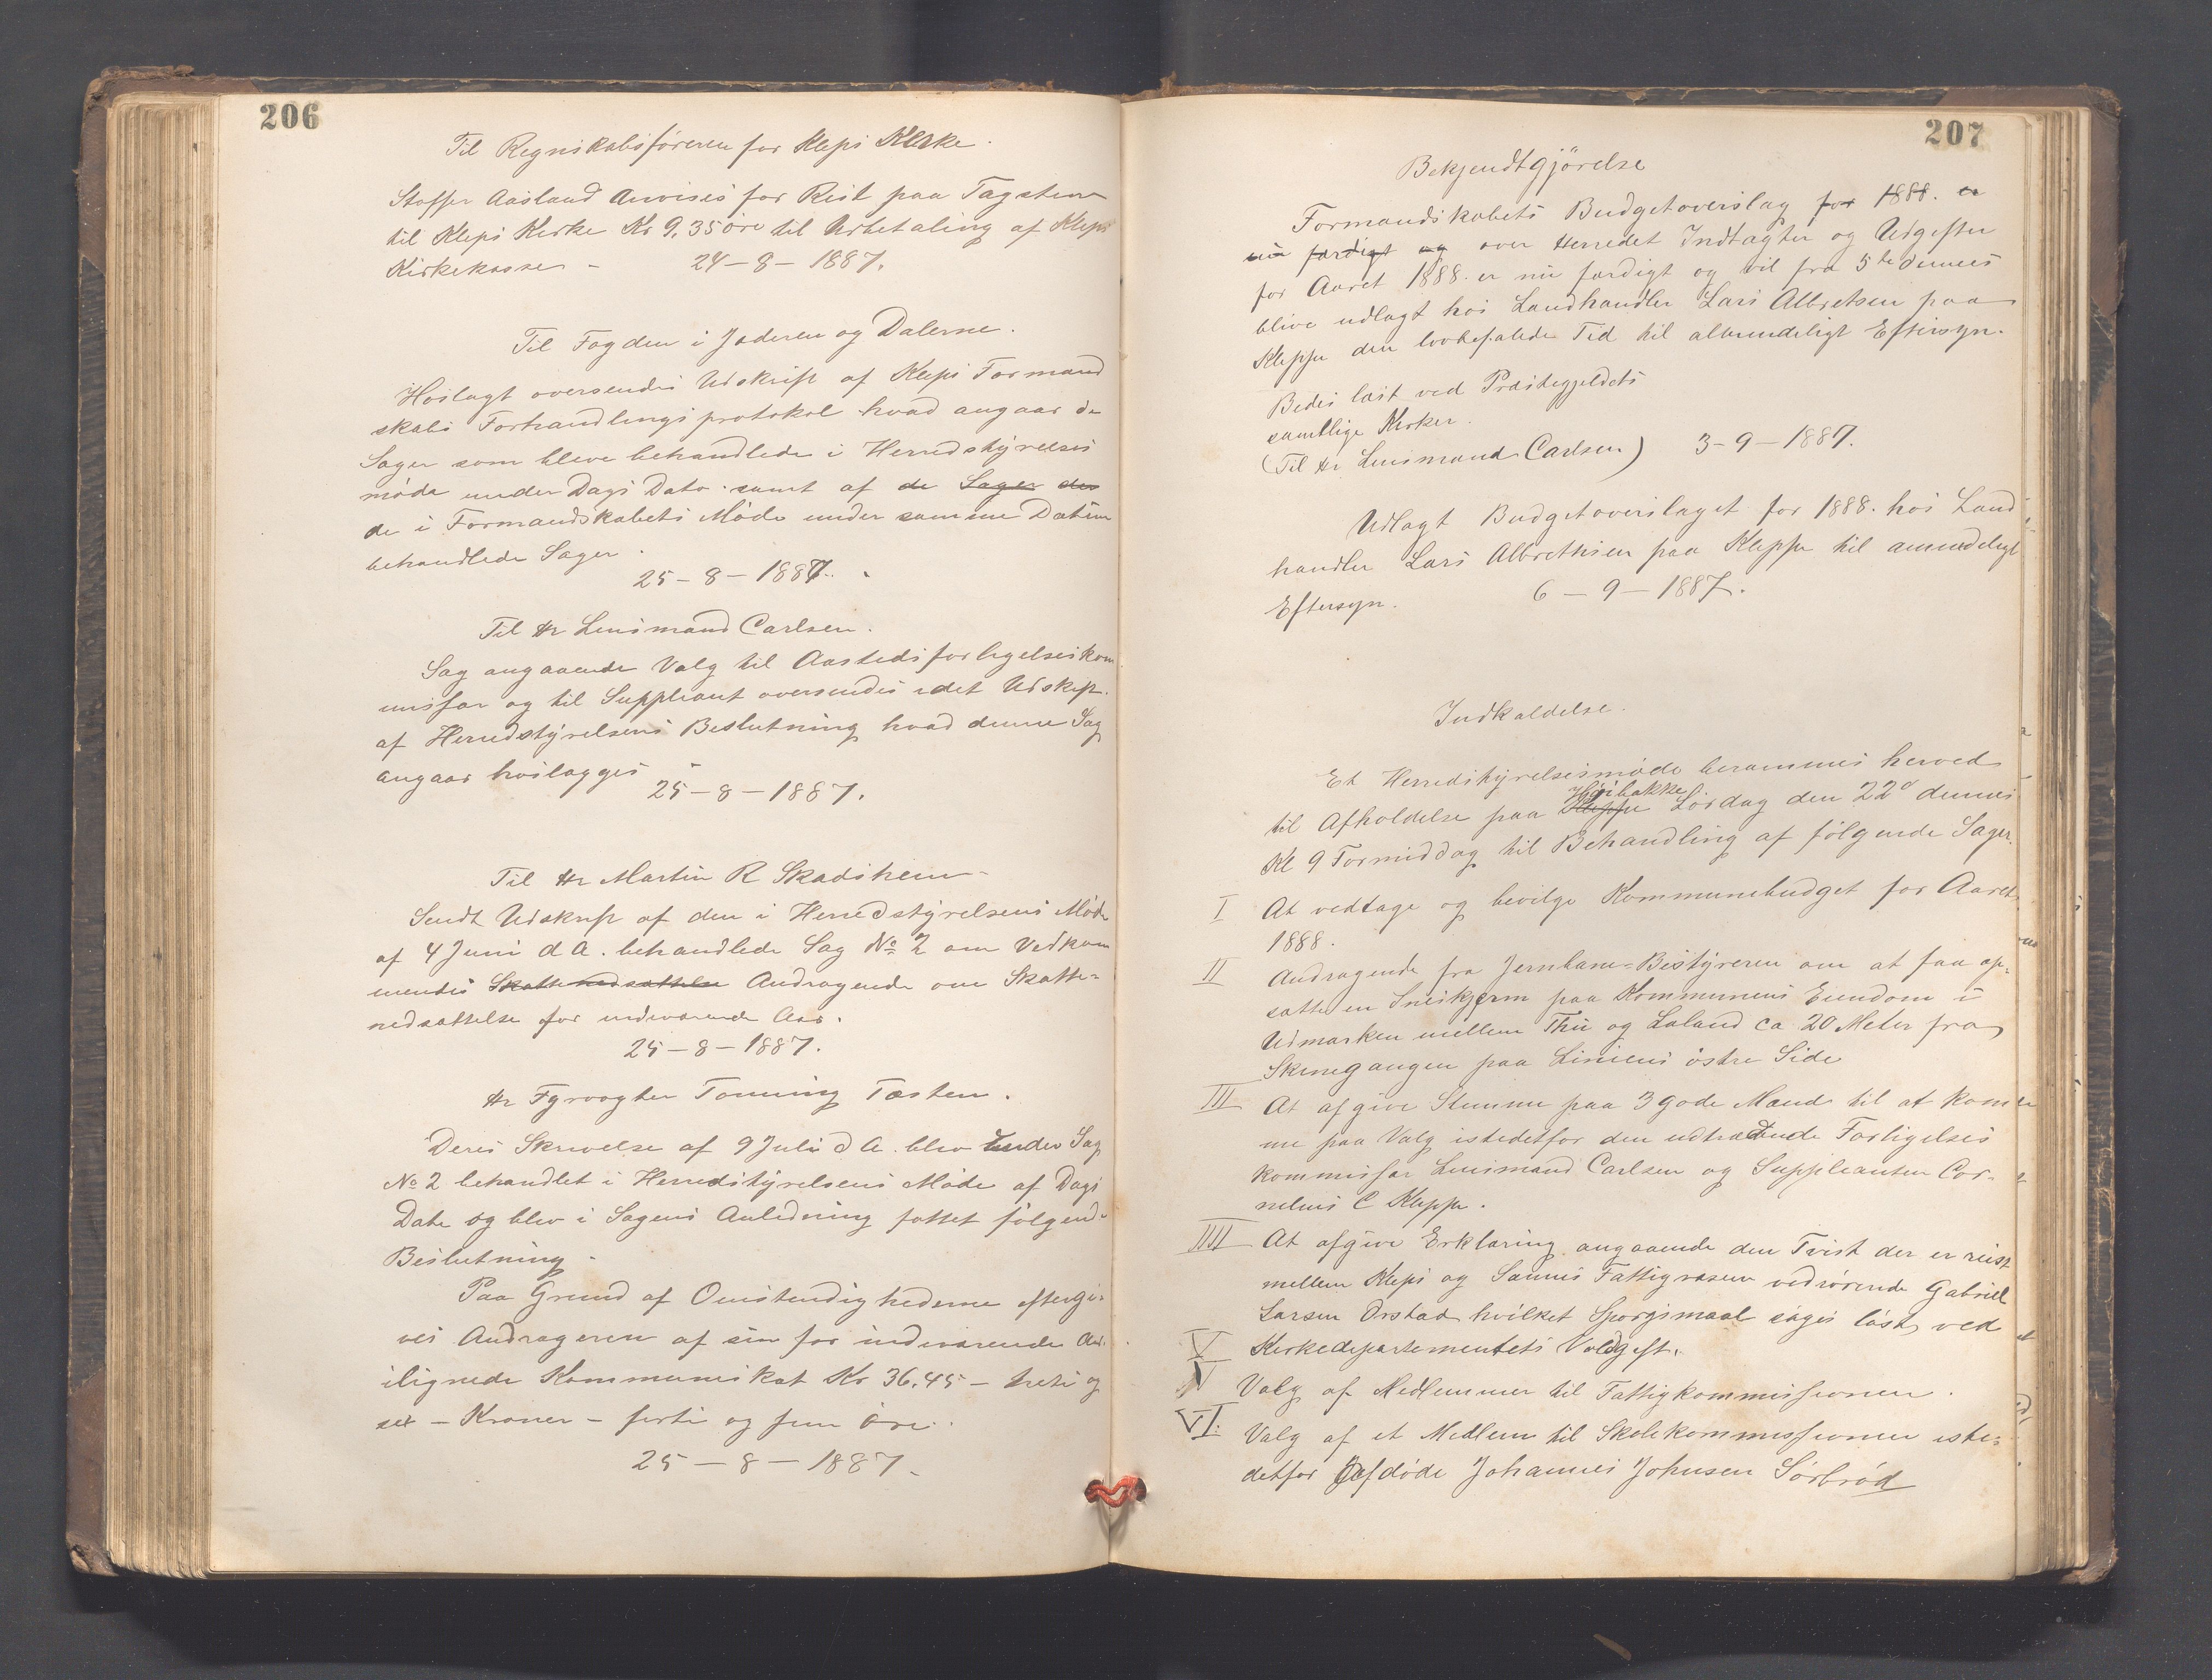 206
Til Regnskabsföreren for Kleps Kirke.
Stoffer Aasland Anvises for Rest paa Tagsten
til Kleps Kirke Kr 9,35 öre til Udbetaling af Kleps
Kirkekasse -
24-8-1887.
Til Fogden i Jæderen og Dalerne.
Hoslagt oversendes Udskrift af Kleps Formand
skabs Forhandlings protokol hvad angaar de
Sager som bleve behandlede i Herredstyrelses
möde under Dags Dato. samt af de Sager der
de i Formandskabets Möde under samme Datum
behandlede Sager.
25-8-1887.
Til Hr Lensmand Carlsen.
Sag angaaende Valg til Aastedsforligelseskom
missær og til Suppleant oversendes idet Udskrift
af Herredstyrelsens Beslutning hvad denne Sag
angaar hoslægges
25-8-1887.
Til Hr Martin R Skadsheim
Sendt Udskrift af den i Herredstyrelsens Möde
af 4 Juni d A. behandlede Sag No 2 om Vedkom
mendes Skatte nedsættelse Andragende om Skatte=
nedsættelse for indeværende Aar.
25-8-1887.
Hr Fyrvogter Tonning Tæsten.
Deres Skrivelse af 9 Juli d A. blev under Sag
No 2 behandlet i Herredstyrelsens Möde af Dags
Dato og blev i Sagens Anledning fattet fölgende
Beslutning.
Paa Grund af Omstendighederne eftergi=
ves Andrageren af sin for indeværende Aar
ilignede Kommuneskat Kr 36,45 - treti og
sex - Kroner - forti og fem öre.
25-8-1887.
207
Bekjendtgjörelse
Formandskabets Budgetoverslag for 1888. er
nu færdigt og over Herredet Indtægter og Udgifter
for Aaret 1888. er nu færdigt og vil fra 5te dennes
blive udlagt hos Landhandler Lars Albretsen paa
Kleppe den lovbefalede Tid til almindeligt Eftersyn.
Bedes læst ved Præstegjeldets
samtlige Kirker.
(Til Hr Lensmand Carlsen) 3-9-1887.
Udlagt Budgetoverslaget for 1888. hos Land
handler Lars Albrethsen paa Kleppe til
Eftersyn.
6-9-1887.
Indkaldelse.
Et Herredstyrelsesmöde berammes herved
til Afholdelse paa Kleppe Lördag den 22d dennes
Kl 9 Formiddag til Behandling af fölgende Sager.
I At vedtage og bevilge Kommunebudget for Aaret
1888.
II Andragende fra Jernbane=Bestyreren om at faa op=
satte en Sneskjerm paa Kommunens Eiendom i
Udmarken mellem Thu og Laland ca 20 Meter fra
Skinegangen paa Liniens östre Side
III At afgive Stemme paa 3 gode Mænd til at kom
me paa Valg istedetfor den udtrædende Forligelses
kommissær Lensmand Carlsen og Suppleanten Cor=
nelius C Kleppe.
IIII At afgive Erklæring angaaende den Tvist der er reist
mellem Kleps og Sannes Fattigvæsen vedrörende Gabriel
Larsen Orstad hvilket Sporgsmaal söges löst ved
Kirkedepartementets Voldgift.
V Valg af Medlemmer til Fattigkommissionen.
VI. Valg af et Medlem til Skolekommissionen iste=
detfor afdöde Johannes Johnsen Sörbröd